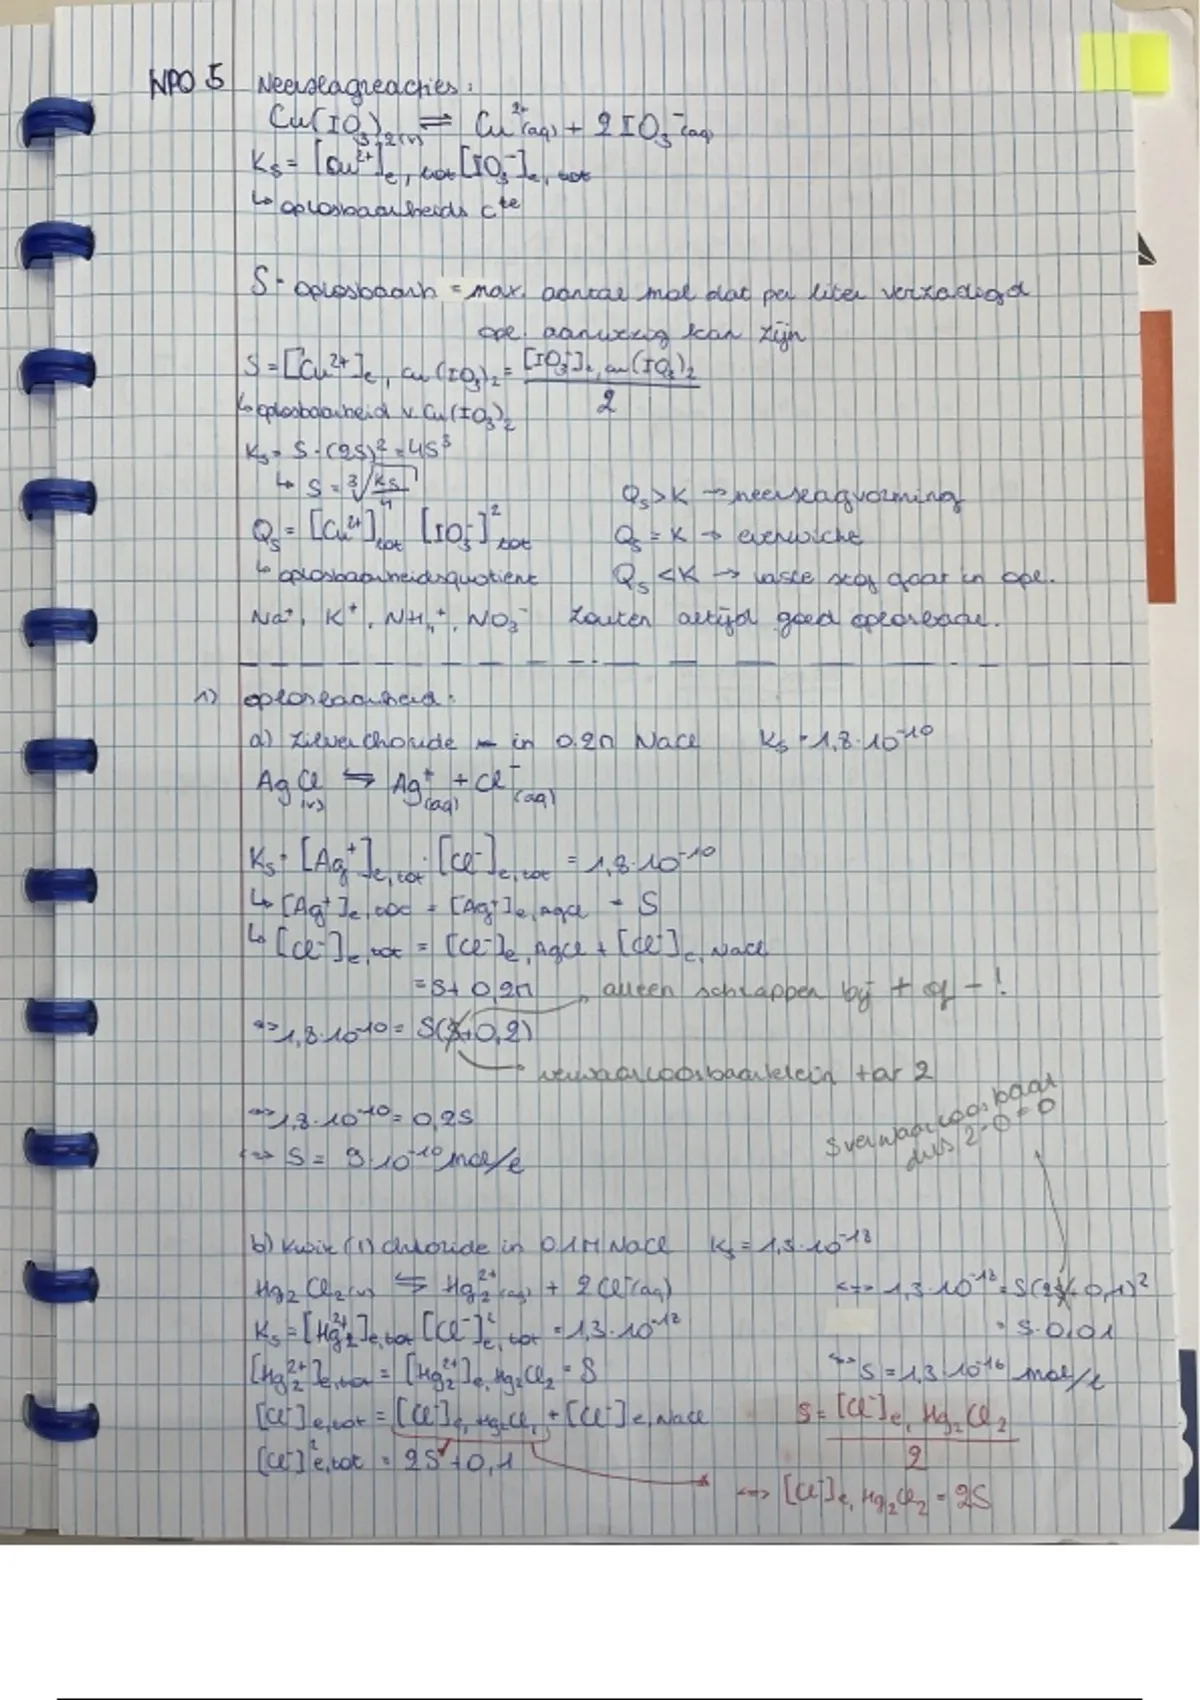 NPO 5 Neerslagreacties:
Cu(IO₃)₂(v) ⇌ Cu²⁺(aq) + 2IO₃⁻(aq)
Ks = [Cu²⁺]e, tot [IO₃⁻]e, tot
↳ oplosbaarheids cte
S = oplosbaarh = max. aantal mol dat per liter verzadigd
opl. aanwezig kan zijn
S = [Cu²⁺]e, Cu(IO₃)₂ = [IO₃⁻]e, Cu(IO₃)₂ / 2
↳ oplosbaarheid v. Cu(IO₃)₂
Ks = S·(2S)² = 4S³
↳ S = ³√(Ks/4)
Qs > K → neerslagvorming
Qs = [Cu²⁺]tot [IO₃⁻]²tot
Qs = K → evenwicht
↳ oplosbaarheidsquotient
Qs < K → vaste stof gaat in opl.
Na⁺, K⁺, NH₄⁺, NO₃⁻ zouten altijd goed oplosbaar.
1) oplosbaarheid:
a) zilverchloride - in 0.2M NaCl Ks = 1,8·10⁻¹⁰
AgCl(v) ⇌ Ag⁺(aq) + Cl⁻(aq)
Ks = [Ag⁺]e,tot · [Cl⁻]e,tot = 1,8·10⁻¹⁰
↳ [Ag⁺]e,tot = [Ag⁺]e,AgCl = S
↳ [Cl⁻]e,tot = [Cl⁻]e,AgCl + [Cl⁻]e,NaCl
= S + 0,2M
alleen schrappen bij + of - !
⇔ 1,8·10⁻¹⁰ = S(S+0,2)
verwaarloosbaar klein tov 2
⇔ 1,8·10⁻¹⁰ = 0,2S
⇔ S = 9·10⁻¹⁰ mol/l
S verwaarloosbaar
dus 2·0 = 0
b) kwik (I) chloride in 0.1M NaCl Ks = 1,3·10⁻¹⁸
Hg₂Cl₂(v) ⇌ Hg₂²⁺(aq) + 2Cl⁻(aq)
⇔ 1,3·10⁻¹⁸ = S(2S+0,1)²
Ks = [Hg₂²⁺]e,tot [Cl⁻]²e,tot = 1,3·10⁻¹⁸
= S·0,01
[Hg₂²⁺]e,tot = [Hg₂²⁺]e,Hg₂Cl₂ = S
⇔ S = 1,3·10⁻¹⁶ mol/l
[Cl⁻]e,tot = [Cl⁻]e,Hg₂Cl₂ + [Cl⁻]e,NaCl
S = [Cl⁻]e, Hg₂Cl₂ / 2
[Cl⁻]²e,tot = 2S + 0,1
⇔ [Cl⁻]e, Hg₂Cl₂ = 2S